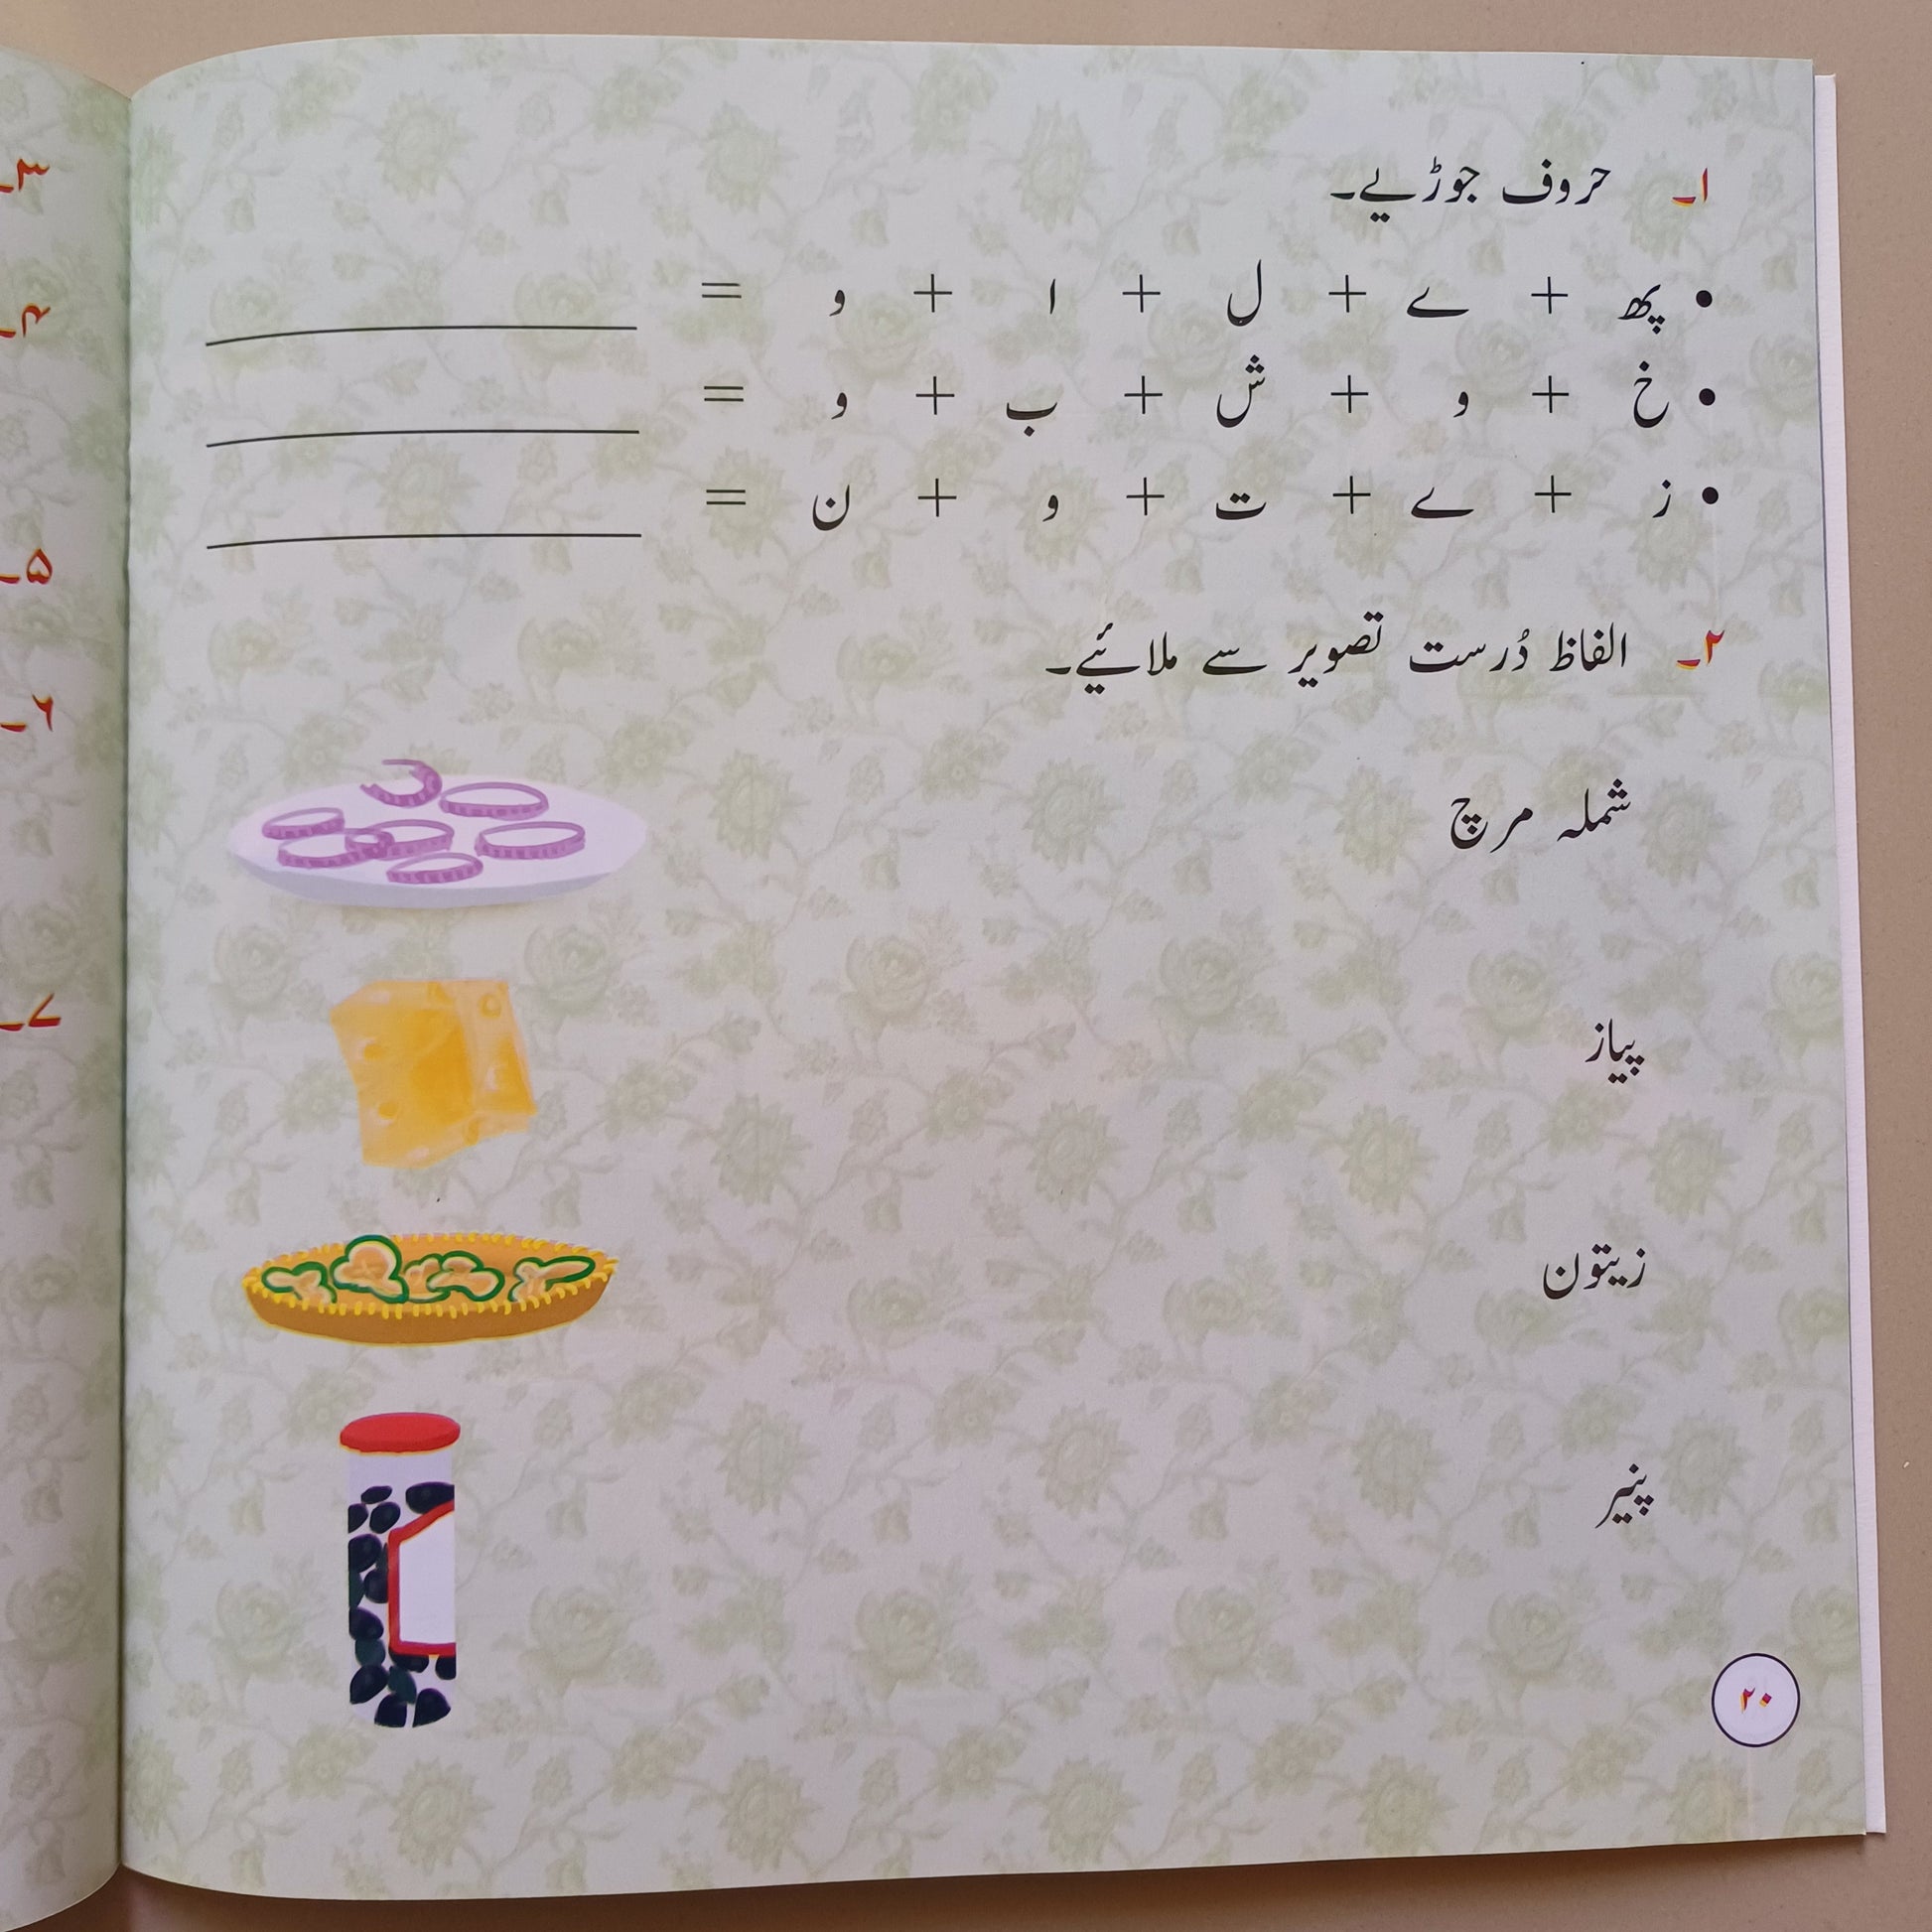 ۱۔ حروف جوڑیے۔
• پھ + ے + ل + ا + و =
• خ + و + ش + ب + و =
• ز + ے + ت + و + ن =
۲۔ الفاظ دُرست تصویر سے ملائیے۔
شملہ مرچ
پیاز
زیتون
پنیر
۲۰
۳۔
۴۔
۵۔
۶۔
۷۔